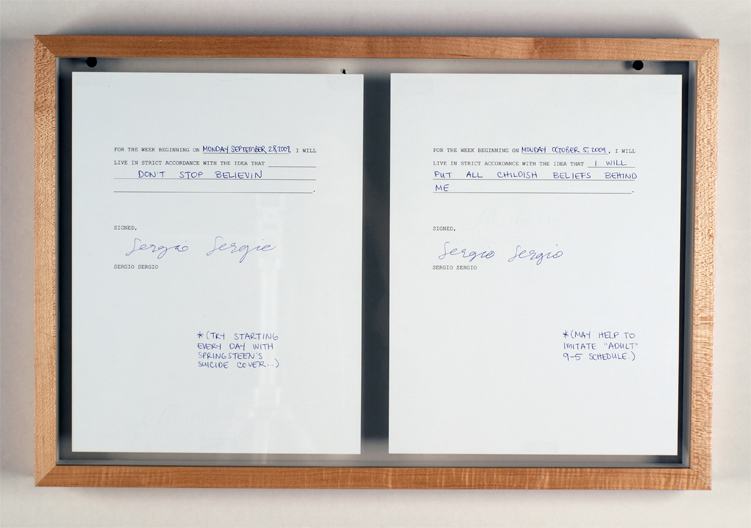 FOR THE WEEK BEGINNING ON MONDAY SEPTEMBER 28, 2009, I WILL
LIVE IN STRICT ACCORDANCE WITH THE IDEA THAT
DON'T STOP BELIEVIN
.
SIGNED,
Sergio Sergio
SERGIO SERGIO
*(TRY STARTING
EVERY DAY WITH
SPRINGSTEEN'S
SUICIDE COVER...)
FOR THE WEEK BEGINNING ON MONDAY OCTOBER 5, 2009, I WILL
LIVE IN STRICT ACCORDANCE WITH THE IDEA THAT I WILL
PUT ALL CHILDISH BELIEFS BEHIND
ME.
SIGNED,
Sergio Sergio
SERGIO SERGIO
*(MAY HELP TO
IMITATE "ADULT"
9-5 SCHEDULE.)